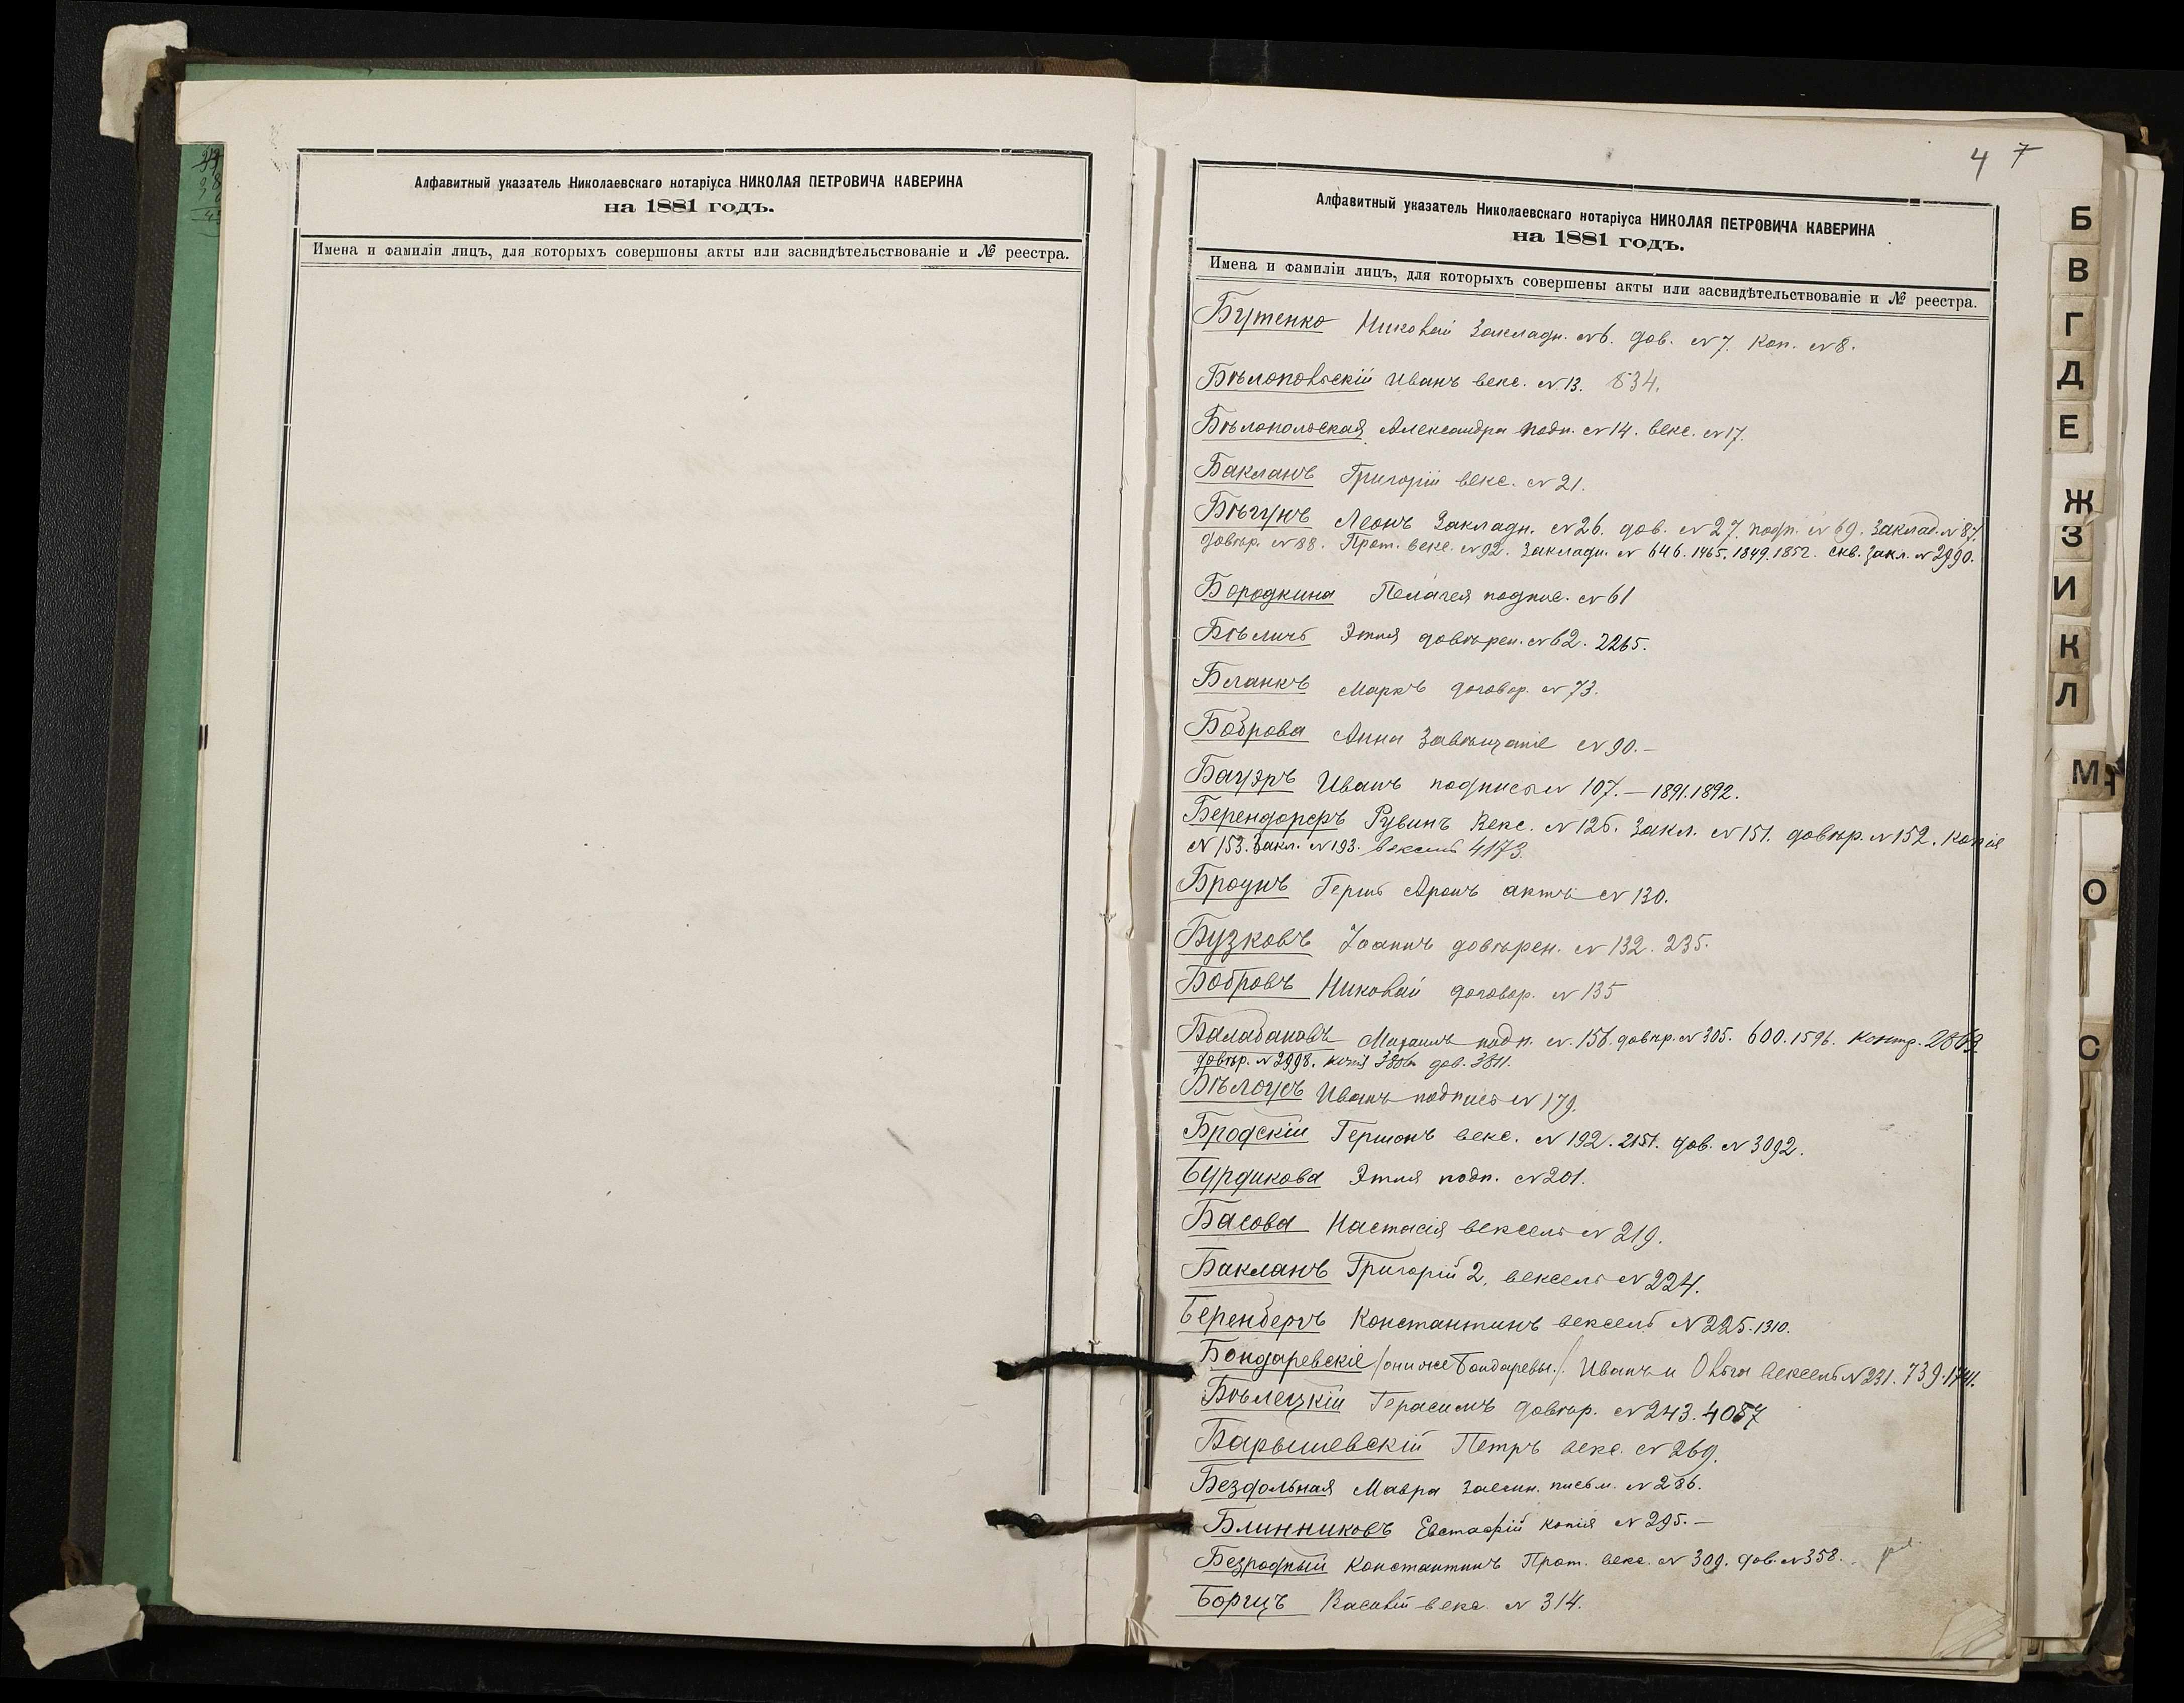 Алфавитный указатель Николаевскаго нотаріуса НИКОЛАЯ ПЕТРОВИЧА КАВЕРИНА
на 1881 годъ.
Имена и фамиліи лицъ, для которыхъ совершоны акты или засвидѣтельствованіе и № реестра.
4 7
Алфавитный указатель Николаевскаго нотаріуса НИКОЛАЯ ПЕТРОВИЧА КАВЕРИНА
на 1881 годъ.
Имена и фамиліи лицъ, для которыхъ совершены акты или засвидѣтельствованіе и № реестра.
Бутенко Николай Закладн. №6. дов. №7. Коп. №8.
Бѣлопольскій Иванъ векс. №13. 834.
Бѣлопольская Александра подп. №14. векс. №17.
Бакланъ Григорій векс. №21.
Бѣгунъ Леонъ Закладн. №26. дов. №27. подп. №69. Заклад. №87.
довѣр. №88. Прот. векс. №92. Закладн. № 646. 1465. 1849. 1852. скв. Закл. №2990.
Бородкина Пелагея подпис. №61
Бѣличъ Этля довѣрен. №62. 2265.
Бланкъ Маркъ договор. №73.
Боброва Анна Завѣщаніе №90.—
Бауэръ Иванъ подпись № 107.—1891.1892.
Берендорфъ Рувинъ Векс. №126. Закл. №151. довѣр. №152. Копія
№153. Закл. №193. вексель 4173.
Броунъ Гершъ Аронъ актъ №130.
Бузковъ Іоаннъ довѣрен. №132. 235.
Бобровъ Николай договор. №135
Балабановъ Михаилъ подп. №. 156. довѣр. №305. 600. 1596. контр. 2863.
довѣр. №2998. копія дов. 3811.
Бѣлоусъ Иванъ подпись №179.
Бродскій Гершонъ векс. №192. 2151. дов. №3092.
Бурдикова Этля подп. №201.
Басова Настасія вексель №219.
Бакланъ Григорій 2, вексель №224.
Беренбергъ Константинъ вексель №225.1310.
Бондаревскіе /они же Бондаревы./ Иванъ и Ольга вексель №231. 739. 1741.
Бѣлецкій Герасимъ довѣр. №243. 4087
Барышевскій Петръ векс. №269.
Бездольная Мавра Заемн. письм. №286.
Блинниковъ Евстафій копія №295.—
Безродный Константинъ Прот. векс. №309. дов. №358.
Боргцъ Василій векс. №314.
Б
В
Г
Д
Е
Ж
З
И
К
Л
М
О
С